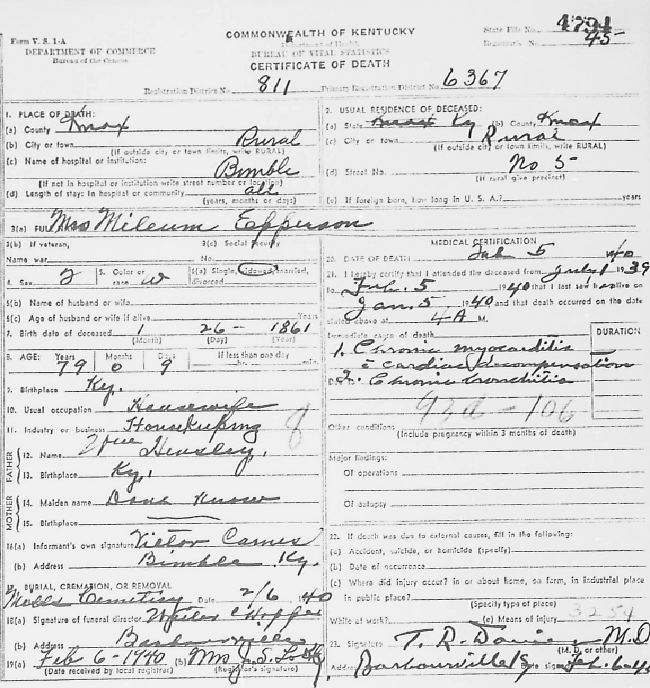 Form V. S. 1-A
COMMONWEALTH OF KENTUCKY
State File No. 4794
DEPARTMENT OF COMMERCE
Department of Health
Registrar's No. 45
Bureau of the Census
BUREAU OF VITAL STATISTICS
CERTIFICATE OF DEATH
Registration District No. 811 Primary Registration District No. 6367
1. PLACE OF DEATH:
(a) County Knox
(b) City or town Rural
(If outside city or town limits, write RURAL)
(c) Name of hospital or institution: Bimble
(If not in hospital or institution write street number or location)
(d) Length of stay: In hospital or community all
(years, months or days)
2. USUAL RESIDENCE OF DECEASED:
(a) State Ky (b) County Knox
(c) City or town Rural
(If outside city or town limits, write RURAL)
(d) Street No. No 5
(If rural give precinct)
(e) If foreign born, how long in U. S. A.? years
3(a) FULL Mrs Mileum Epperson
3(b) If veteran, 3(c) Social Security
Name war No.
4. Sex 2 5. Color or race W 6(a) Single, widowed, married, divorced
6(b) Name of husband or wife
6(c) Age of husband or wife if alive Years
7. Birth date of deceased 1 26 - 1861
(Month) (Day) (Year)
8. AGE: Years Months Days If less than one day
79 0 9 hr. min.
9. Birthplace Ky.
10. Usual occupation Housewife
11. Industry or business Housekeeping
8
FATHER
12. Name Hensley,
13. Birthplace Ky,
MOTHER
14. Maiden name Dont Know
15. Birthplace
16(a) Informant's own signature Victor Carnes
(b) Address Bimble Ky.
17. BURIAL, CREMATION, OR REMOVAL
Cemetery Date 2/6 1940
18(a) Signature of funeral director
(b) Address Barbourville
19(a) Feb 6-1940 (b) Mrs
(Date received by local registrar) (Registrar's signature)
MEDICAL CERTIFICATION
20. DATE OF DEATH Feb 5 40
21. I hereby certify that I attended the deceased from July 1 1939
to Feb. 5 1940 that I last saw alive on
Jan. 5 1940 and that death occurred on the date
stated above at 4 A M.
Immediate cause of death
DURATION
1. Chronic myocarditis
c cardiac decompensation
2. Chronic bronchitis
93d - 106
Other conditions
(Include pregnancy within 3 months of death)
Major findings:
Of operations
Of autopsy
22. If death was due to external causes, fill in the following:
(a) Accident, suicide, or homicide (specify)
(b) Date of occurrence
(c) Where did injury occur? in or about home, on farm, in industrial place
in public place?
(Specify type of place)
While at work? (e) Means of injury 3254
23. Signature T. R. Davies M.D.
(M. D. or other)
Address Barbourville Ky Date signed Feb. 6-40